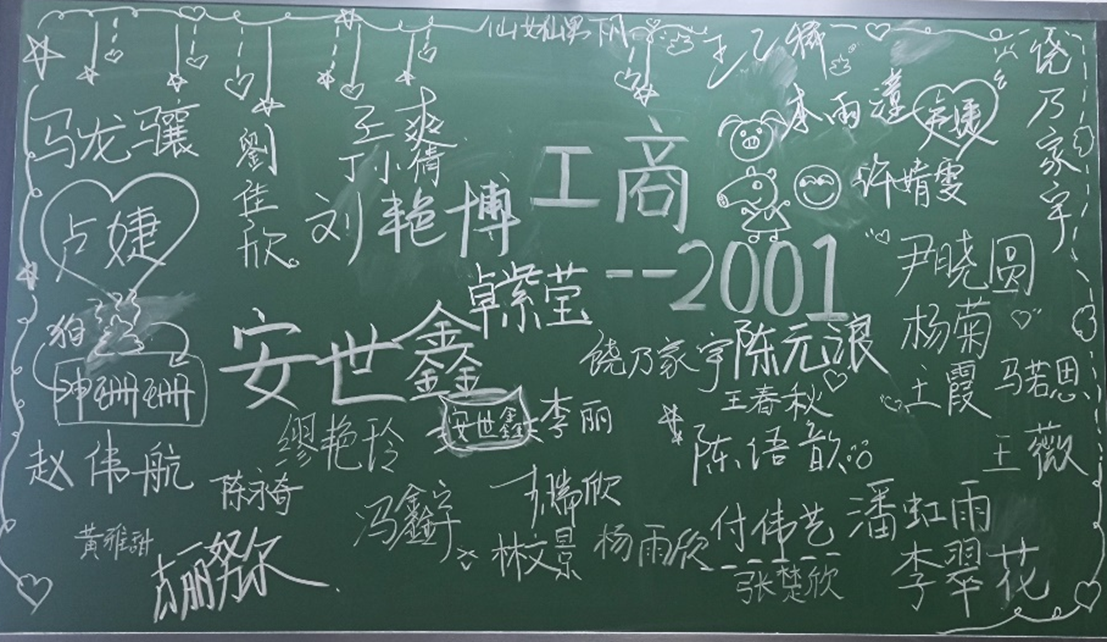 仙女仙男下凡
马龙骧
劉佳欣
孟爽
丁小倩
刘艳博
工商
--2001
李雨潼
卢婕
许婧雯
饶乃家宇
卢婕
尹晓圆
卓紫莹
安世鑫
饶乃家宇
陈元浪
杨菊
王春秋
王霞
马若恩
珊珊
缪艳玲
安世鑫
李丽
陈语歆
王薇
赵伟航
陈永奇
冯鑫宇
潘虹雨
黄雅甜
林文景
杨雨欣
付伟艺
张楚欣
李翠花